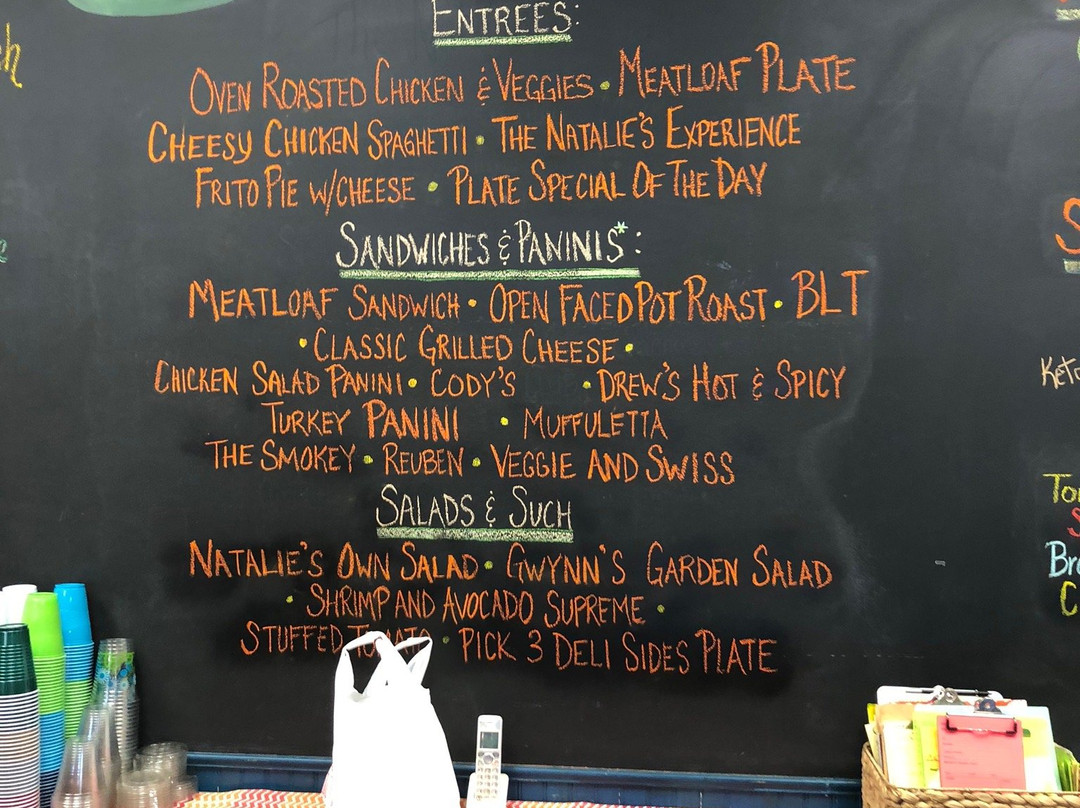 ENTREES:
OVEN ROASTED CHICKEN & VEGGIES • MEATLOAF PLATE
CHEESY CHICKEN SPAGHETTI • THE NATALIE'S EXPERIENCE
FRITO PIE W/CHEESE • PLATE SPECIAL OF THE DAY
SANDWICHES & PANINIS*:
MEATLOAF SANDWICH • OPEN FACED POT ROAST • BLT
• CLASSIC GRILLED CHEESE •
CHICKEN SALAD PANINI • CODY'S • DREW'S HOT & SPICY
TURKEY PANINI • MUFFULETTA
THE SMOKEY • REUBEN • VEGGIE AND SWISS
SALADS & SUCH
NATALIE'S OWN SALAD • GWYNN'S GARDEN SALAD
• SHRIMP AND AVOCADO SUPREME •
STUFFED TOMATO • PICK 3 DELI SIDES PLATE